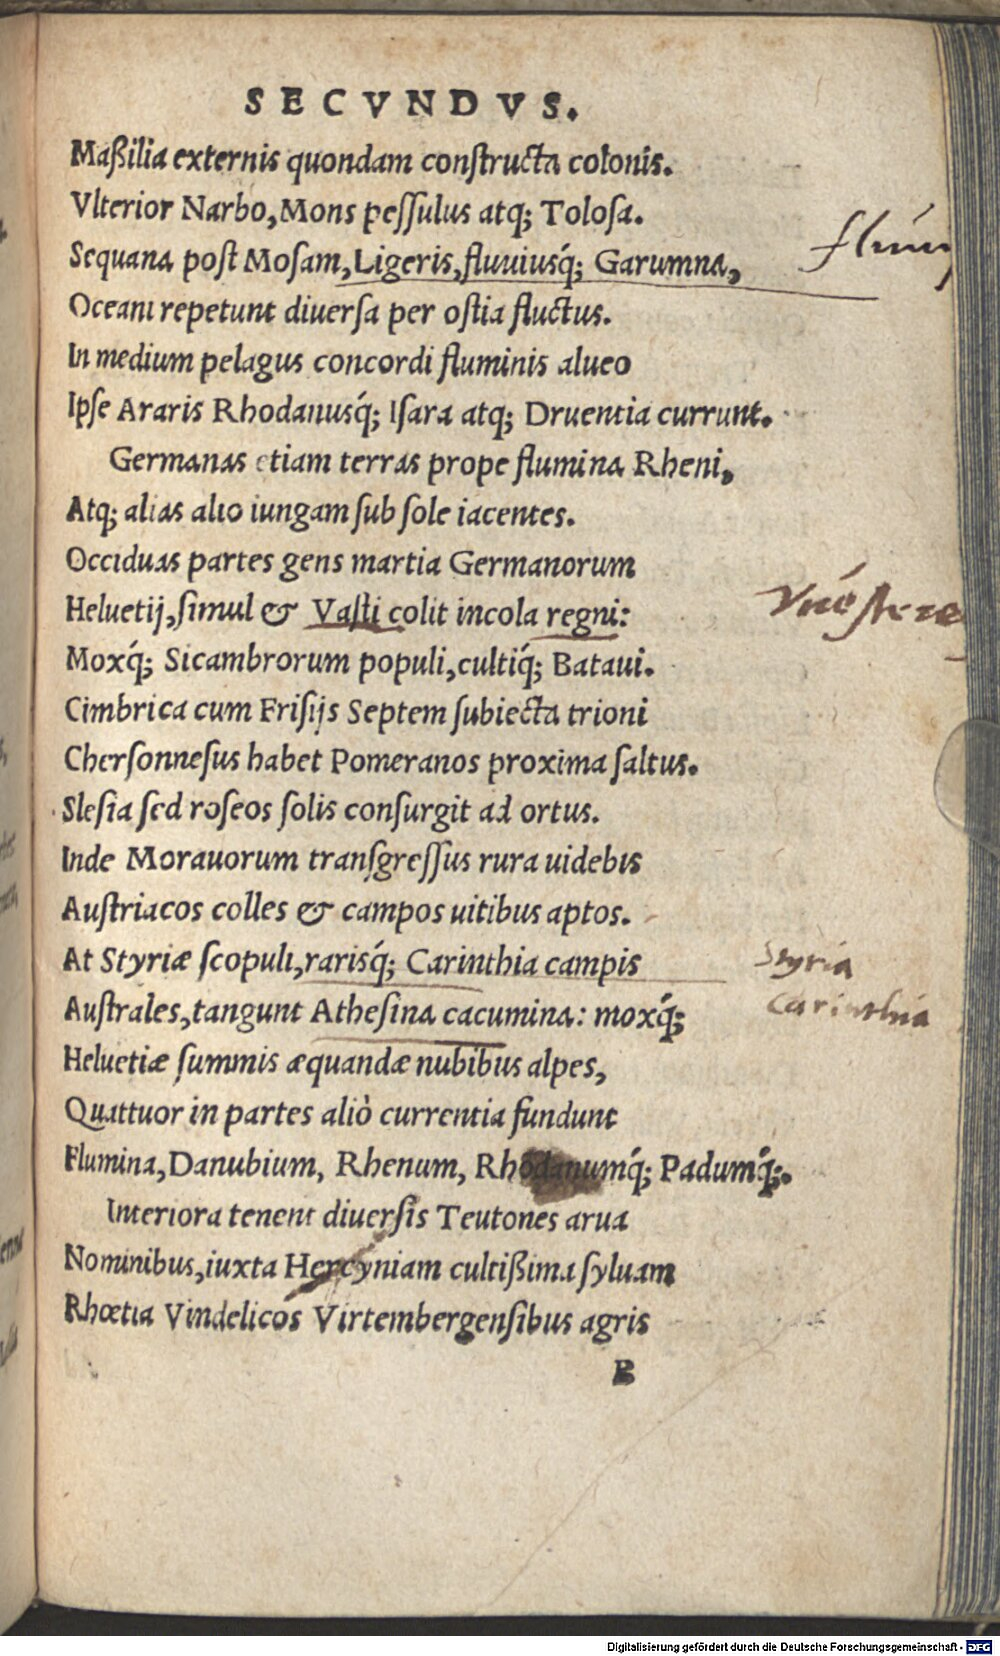 SECVNDVS.
Maßilia externis quondam conſtructa colonis.
Vlterior Narbo, Mons peſſulus atq; Toloſa.
Sequana poſt Moſam, Ligeris, fluuiusq́; Garumna,
Oceani repetunt diuerſa per oſtia fluctus.
In medium pelagus concordi fluminis alueo
Ipſe Araris Rhodanusq́; Iſara atq; Druentia currunt.
Germanas etiam terras prope flumina Rheni,
Atq; alias alio iungam ſub ſole iacentes.
Occiduas partes gens martia Germanorum
Heluetij, ſimul & Vaſti colit incola regni:
Moxq́; Sicambrorum populi, cultiq́; Bataui.
Cimbrica cum Friſijs Septem ſubiecta trioni
Cherſonneſus habet Pomeranos proxima ſaltus.
Sleſia ſed roſeos ſolis conſurgit ad ortus.
Inde Morauorum tranſgreſſus rura uidebis
Auſtriacos colles & campos uitibus aptos.
At Styriæ ſcopuli, rarisq́; Carinthia campis
Styria
Auſtrales, tangunt Atheſina cacumina: moxq́;
Carinthia
Heluetiæ ſummis æquandæ nubibus alpes,
Quattuor in partes aliò currentia fundunt
Flumina, Danubium, Rhenum, Rhodanumq́; Padumq́;.
Interiora tenent diuerſis Teutones arua
Nominibus, iuxta Hercyniam cultißima ſyluam
Rhœtia Vindelicos Virtembergenſibus agris
B
Digitalisierung gefördert durch die Deutsche Forschungsgemeinschaft - DFG